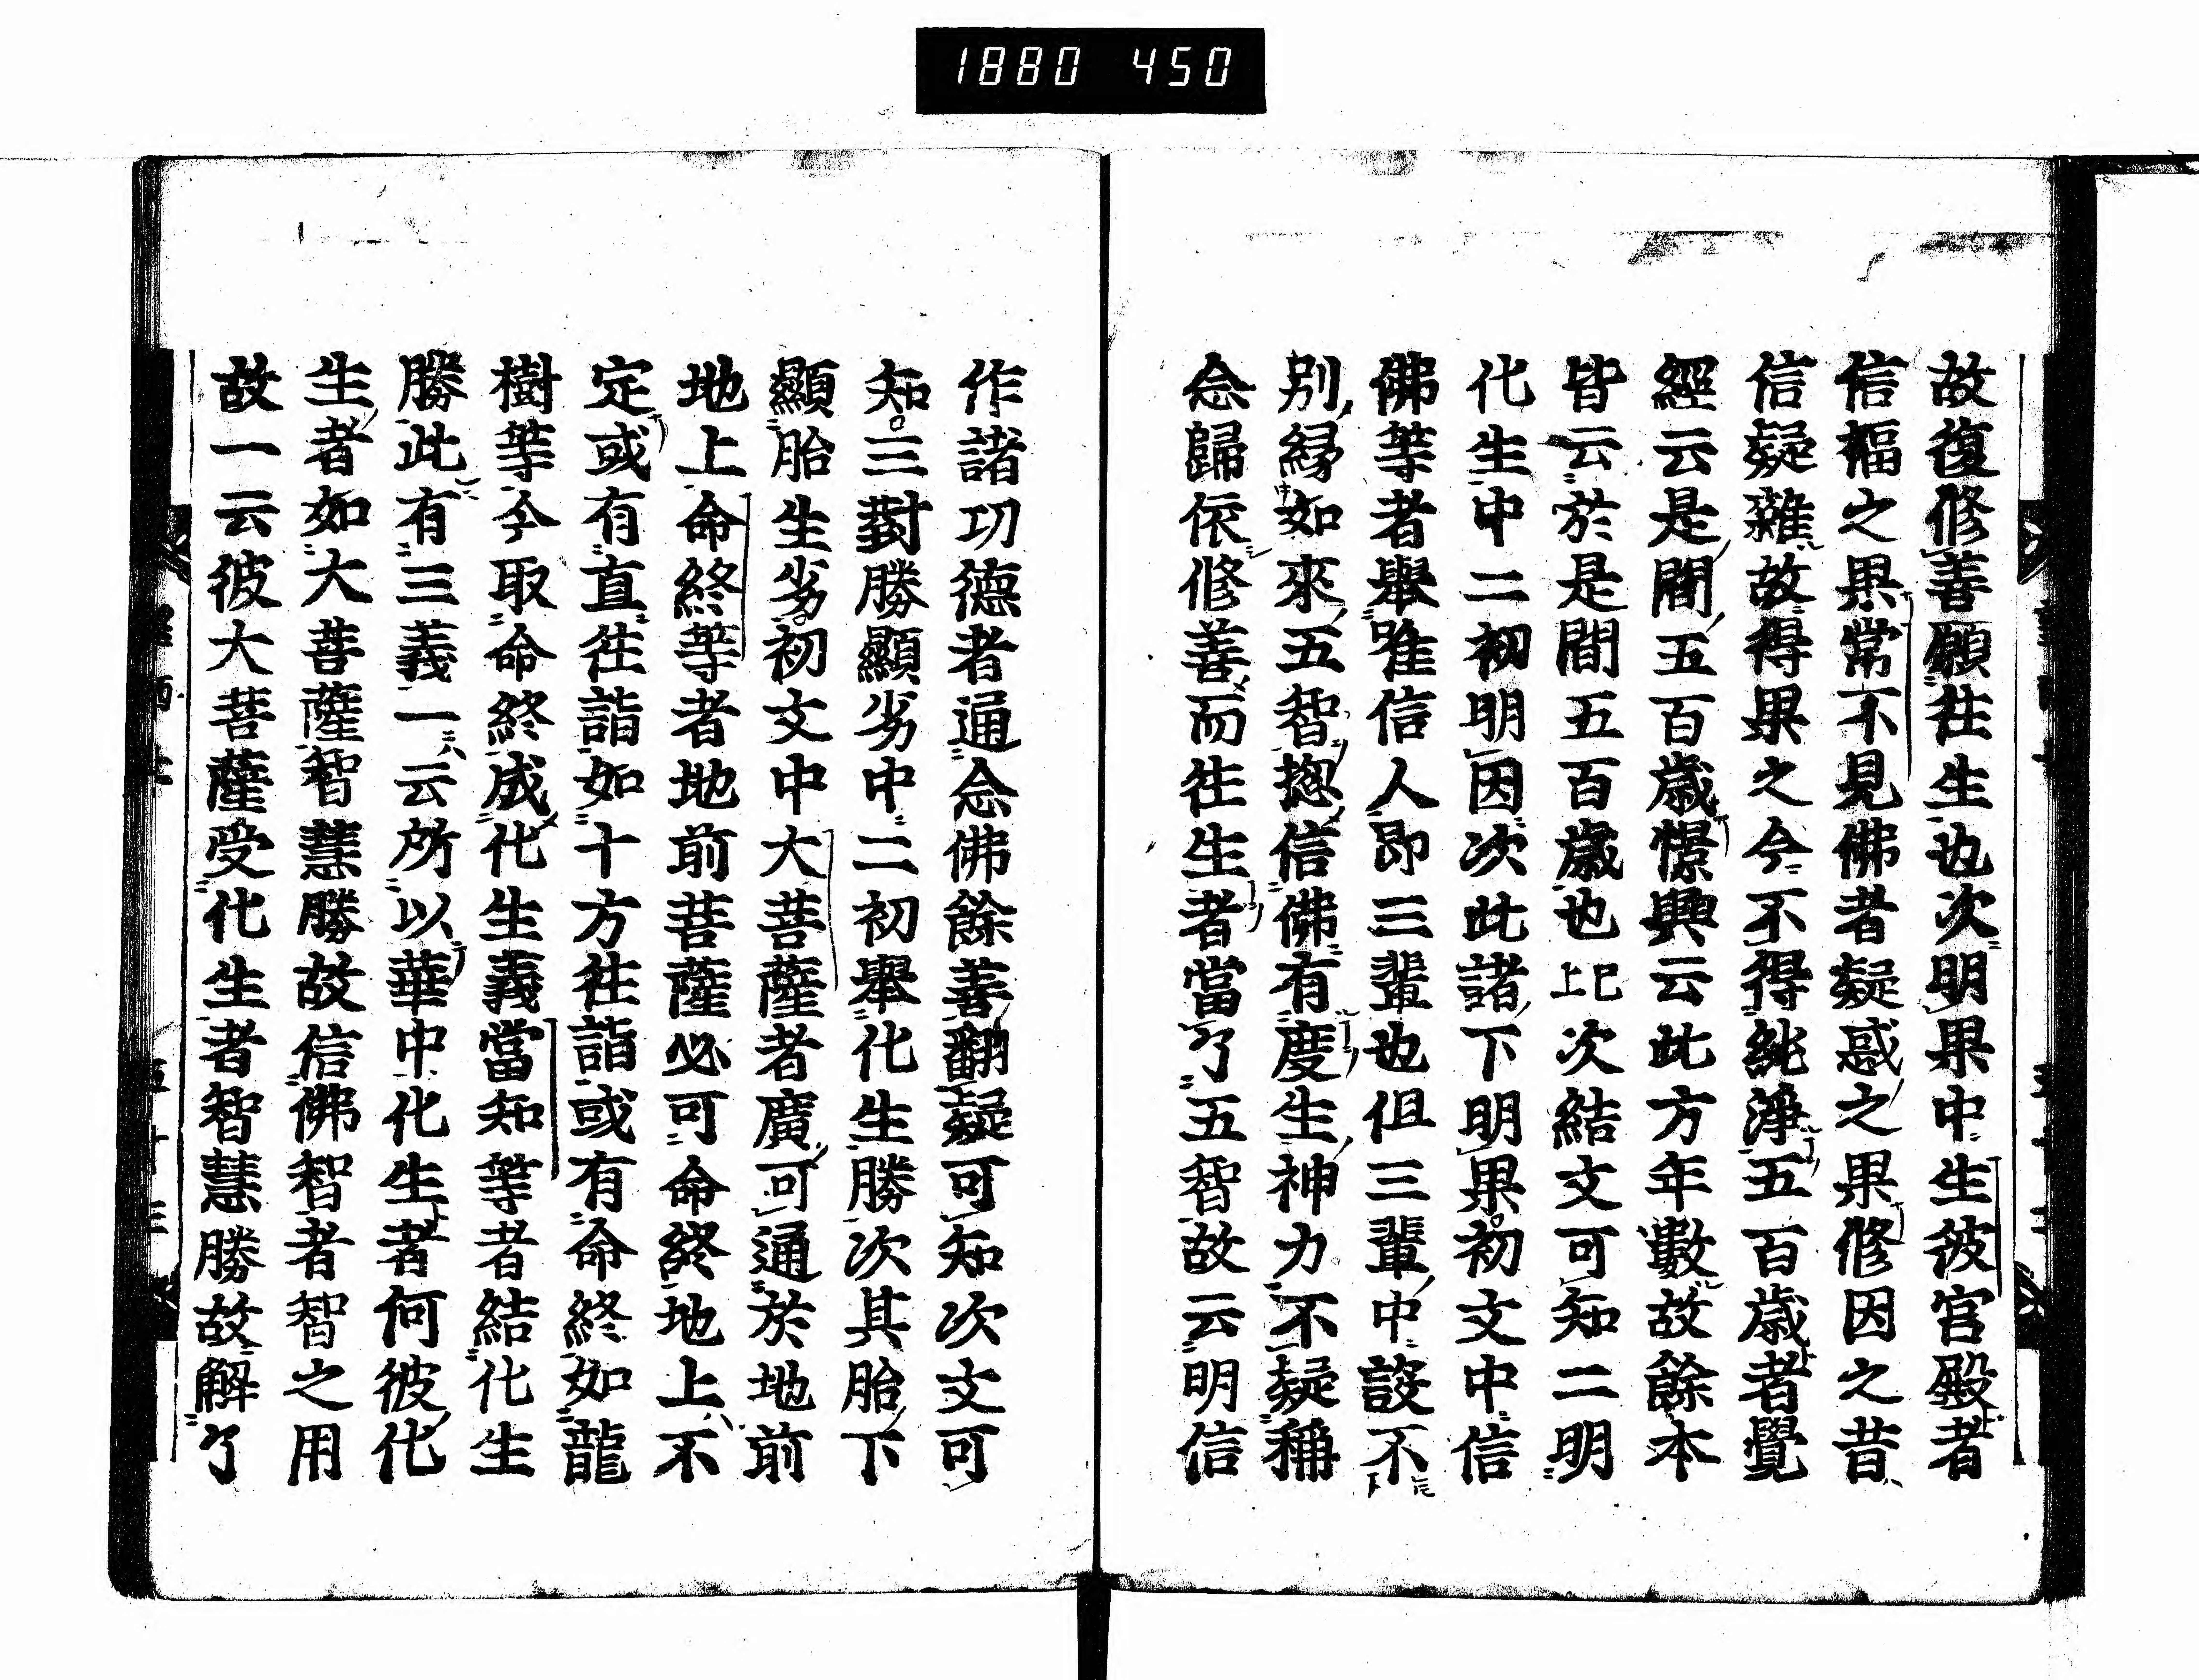 1880 450
故復修善願往生也次明果中生彼宮殿者
信福之果常不見佛者疑惑之果修因之昔
信疑雜故得果之今不得純淨五百歲者覺
經云是間五百歲憬興云此方年數故餘本
皆云於是間五百歲也上已次結文可知二明
化生中二初明因次此諸下明果初文中信
佛等者舉唯信人即三輩也但三輩中設不
別縁如來五智揔信佛有度生神力不疑稱
念歸依修善而往生者當了五智故云明信
作諸功德者通念佛餘善翻疑可知次文可
知三對勝顯劣中二初舉化生勝次其胎下
顯胎生劣初文中大菩薩者廣可通於地前
地上命終等者地前菩薩必可命終地上不
定或有直往詣如十方往詣或有命終如龍
樹等今取命終成化生義當知等者結化生
勝此有三義一云所以華中化生者何彼化
生者如大菩薩智慧勝故信佛智者智之用
故一云彼大菩薩受化生者智慧勝故解了